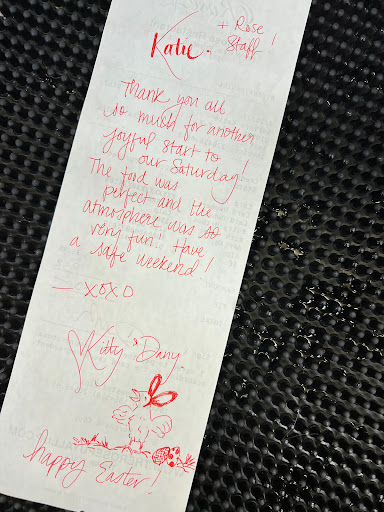 Katie.
+ Rose
Staff!
Thank you all
so much for another
joyful start to
our Saturday!
The food was
perfect and the
atmosphere was so
very fun! Have
a safe weekend!
— XOXO
Kitty & Dany.
happy Easter!